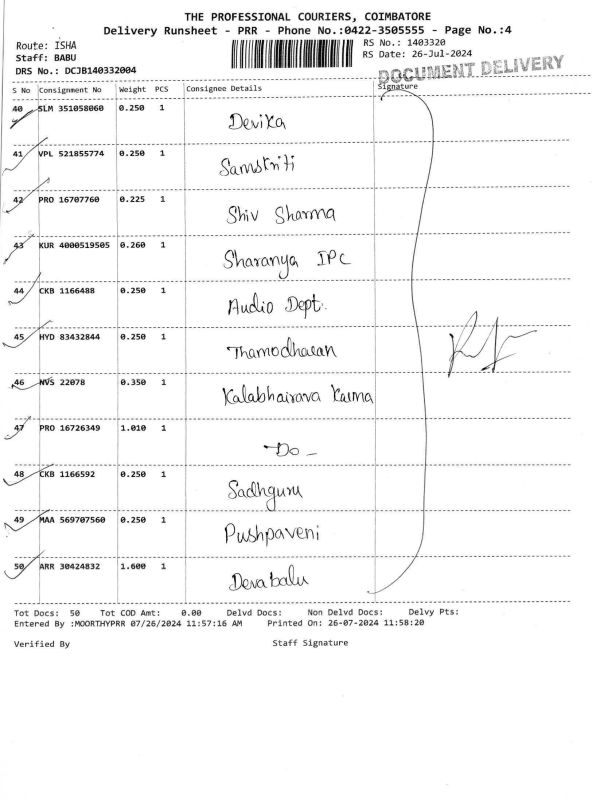 THE PROFESSIONAL COURIERS, COIMBATORE
Delivery Runsheet - PRR - Phone No.:0422-3505555 - Page No.:4
Route: ISHA
RS No.: 1403320
Staff: BABU
RS Date: 26-Jul-2024
DRS No.: DCJB140332004
DOCUMENT DELIVERY
S No Consignment No Weight PCS Consignee Details Signature
40 SLM 351058060 0.250 1
Devika
41 VPL 521855774 0.250 1
Samskriti
42 PRO 16707760 0.225 1
Shiv Sharma
43 KUR 4000519505 0.260 1
Sharanya IPC
44 CKB 1166488 0.250 1
Audio Dept.
45 HYD 83432844 0.250 1
Thamodharan
46 NVS 22078 0.350 1
Kalabhairava Karma
47 PRO 16726349 1.010 1
- Do -
48 CKB 1166592 0.250 1
Sadhguru
49 MAA 569707560 0.250 1
Pushpaveni
50 ARR 30424832 1.600 1
Devabalu
Tot Docs: 50 Tot COD Amt: 0.00 Delvd Docs: Non Delvd Docs: Delvy Pts:
Entered By :MOORTHYPRR 07/26/2024 11:57:16 AM Printed On: 26-07-2024 11:58:20
Verified By Staff Signature